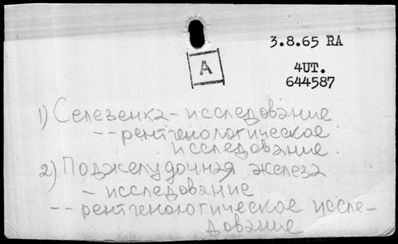 3.8.65 RA
A
4UT.
644587
1) Селезенка - исследование
-- рентгенологическое
исследование.
2) Поджелудочная железа
- исследование
-- рентгенологическое иссле-
дование